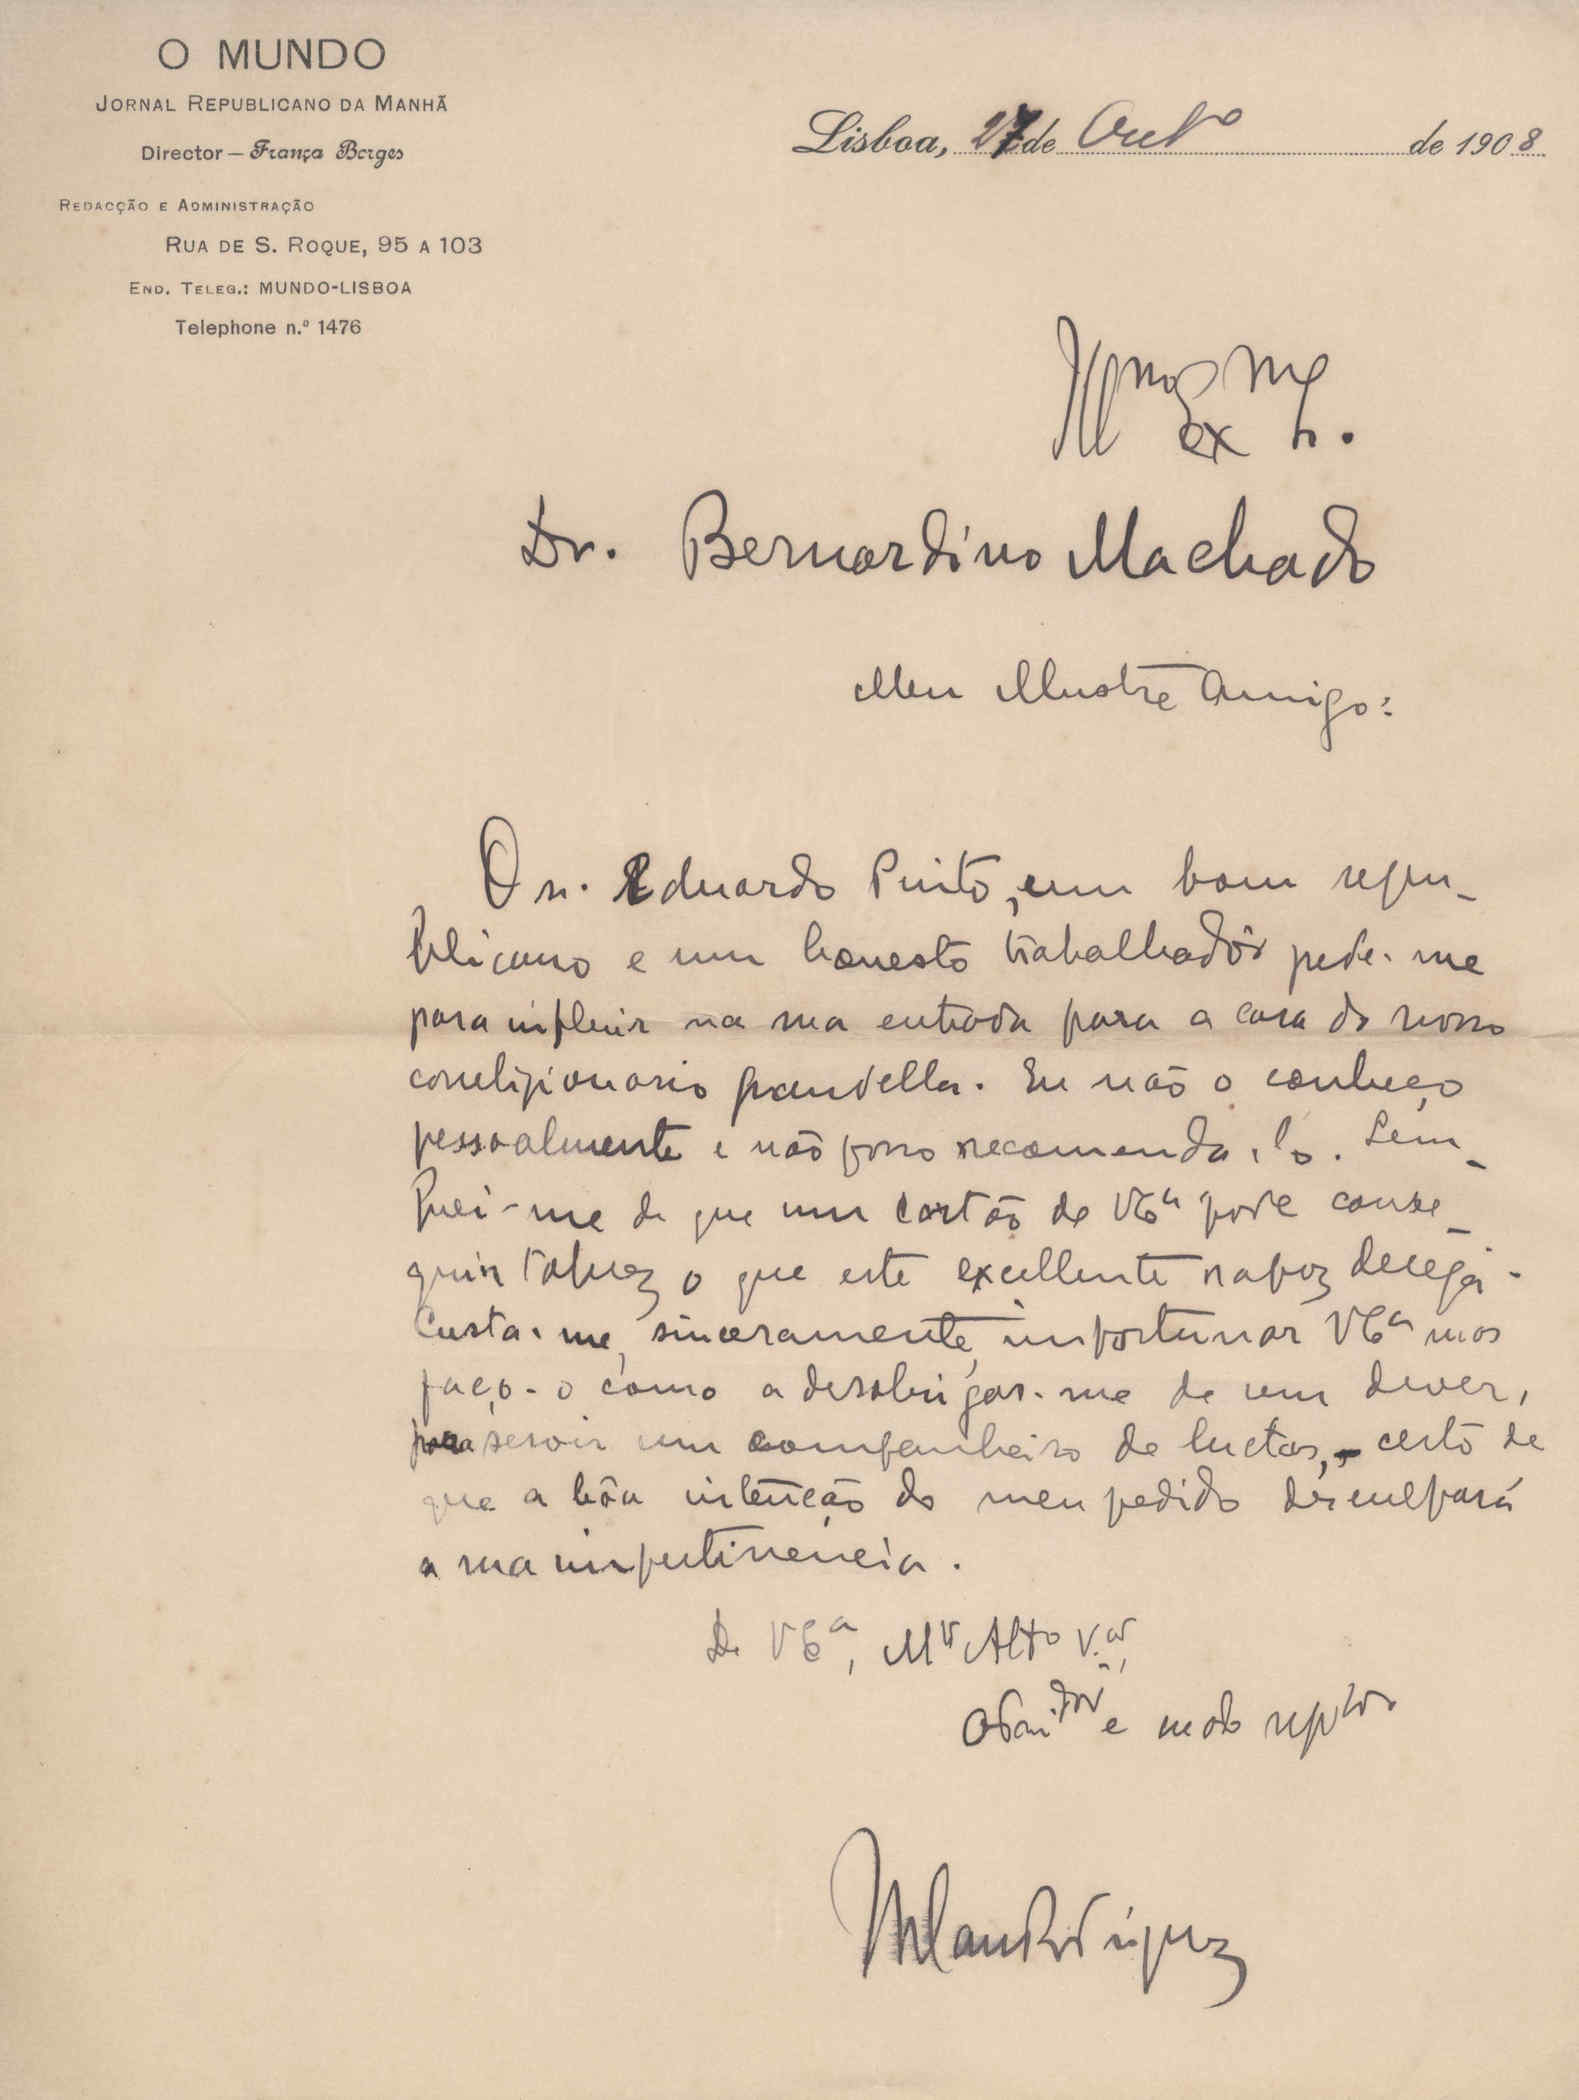 O MUNDO
JORNAL REPUBLICANO DA MANHÃ
Director — França Borges
REDACÇÃO E ADMINISTRAÇÃO
RUA DE S. ROQUE, 95 A 103
END. TELEG.: MUNDO-LISBOA
Telephone n.º 1476
Lisboa, 27 de Outº de 1908
Illmo Ex
Dr. Bernardino Machado
Meu Illustre Amigo:
O sr. Eduardo Pinto, um bom repu-
blicano e um honesto trabalhadôr pede-me
para influir na sua entrada para a casa do nosso
correligionario Grandella. Eu não o conheço
pessoalmente e não posso recomenda-lo. Lem-
brei-me de que um cartão de V Ex.ª pode conse-
guir talvez o que este excellente rapaz deseja.
Custa-me, sinceramente, importunar V Ex.ª mas
faço-o como a desobrigar-me de um dever,
para servir um companheiro de luctas, - certo de
que a bôa intenção do meu pedido desculpará
a sua impertinencia.
De V Ex.ª, Mto Altº V.or,
e mtº